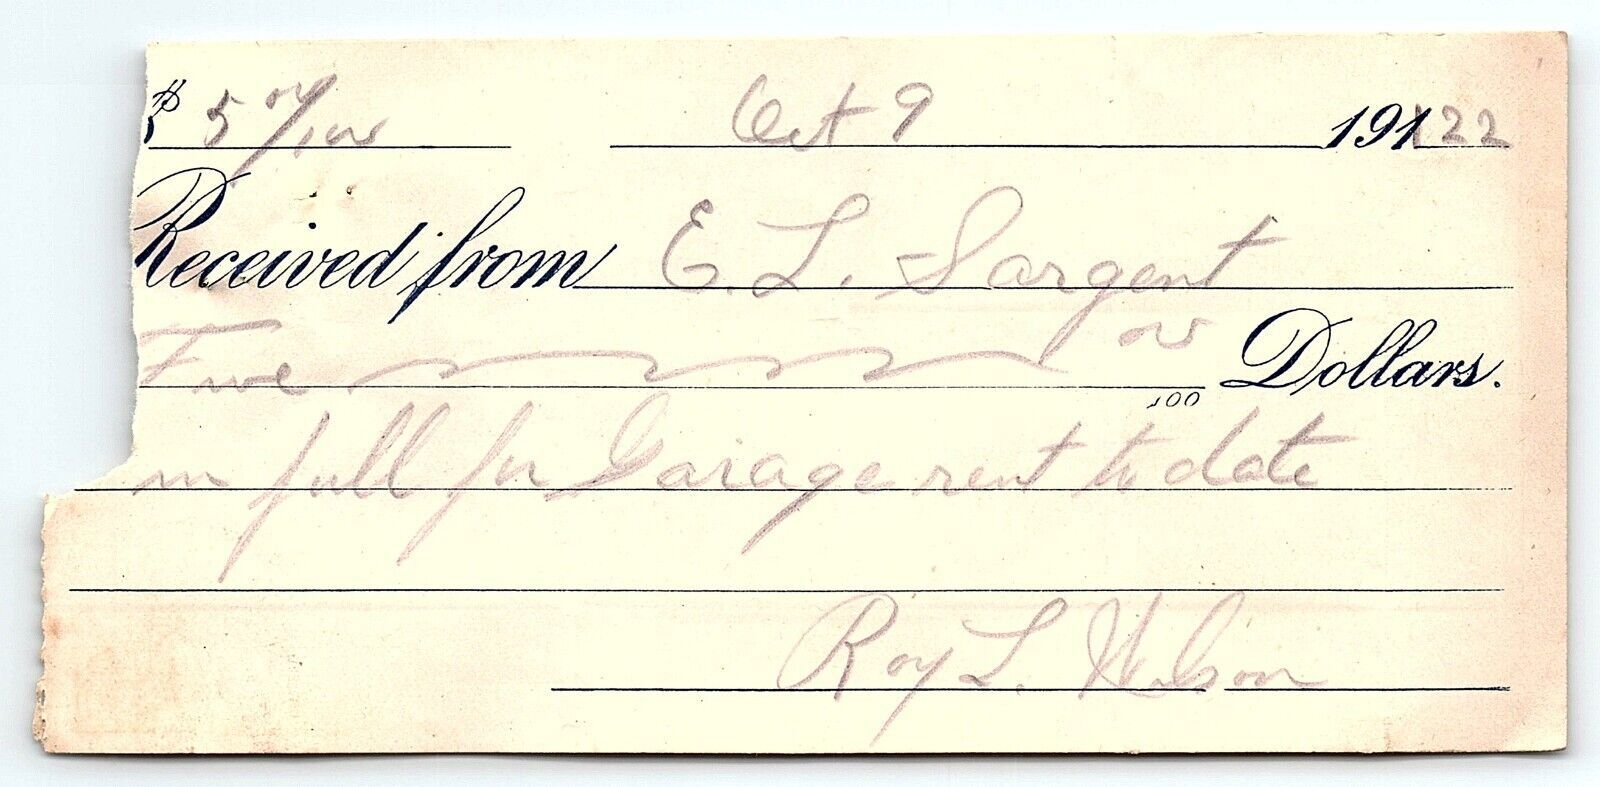 $ 5 00/100 Oct 9 19122
Received from E. L. Sargent
Five 00/100 Dollars.
in full for Garage rent to date
Roy L. Wilson